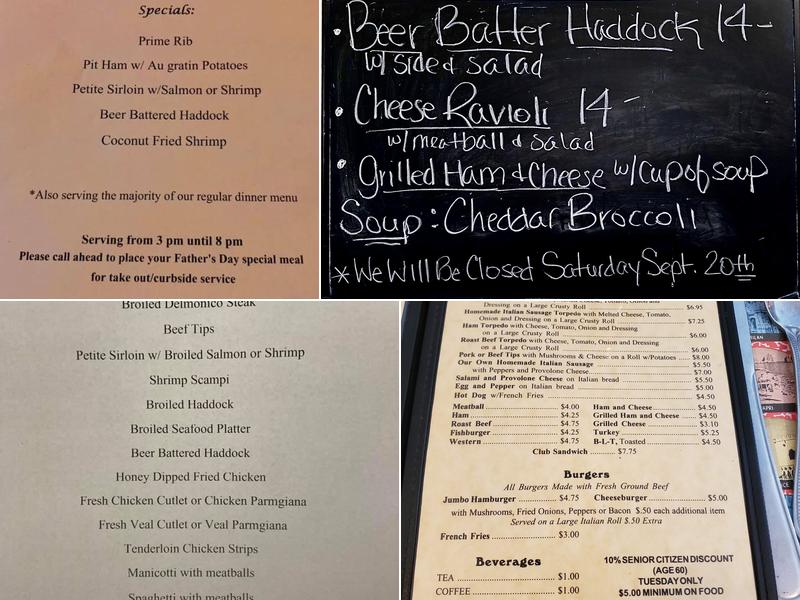 Specials:
Prime Rib
Pit Ham w/ Au gratin Potatoes
Petite Sirloin w/Salmon or Shrimp
Beer Battered Haddock
Coconut Fried Shrimp
*Also serving the majority of our regular dinner menu
Serving from 3 pm until 8 pm
Please call ahead to place your Father's Day special meal
for take out/curbside service
• Beer Batter Haddock 14-
w/ side & salad
• Cheese Ravioli 14-
w/ meatball & salad
• Grilled Ham & Cheese w/ Cup of soup
Soup: Cheddar Broccoli
* We Will Be Closed Saturday Sept. 20th
Broiled Delmonico Steak
Beef Tips
Petite Sirloin w/ Broiled Salmon or Shrimp
Shrimp Scampi
Broiled Haddock
Broiled Seafood Platter
Beer Battered Haddock
Honey Dipped Fried Chicken
Fresh Chicken Cutlet or Chicken Parmgiana
Fresh Veal Cutlet or Veal Parmgiana
Tenderloin Chicken Strips
Manicotti with meatballs
Spaghetti with meatballs
Dressing on a Large Crusty Roll $6.95
Homemade Italian Sausage Torpedo with Melted Cheese, Tomato,
Onion and Dressing on a Large Crusty Roll $7.25
Ham Torpedo with Cheese, Tomato, Onion and Dressing
on a Large Crusty Roll $6.00
Roast Beef Torpedo with Cheese, Tomato, Onion and Dressing
on a Large Crusty Roll $6.00
Pork or Beef Tips with Mushrooms & Cheese on a Roll w/Potatoes $8.00
Our Own Homemade Italian Sausage $5.50
with Peppers and Provolone Cheese $7.00
Salami and Provolone Cheese on Italian bread $5.50
Egg and Pepper on Italian bread $5.00
Hot Dog w/French Fries $4.50
Meatball $4.00 Ham and Cheese $4.50
Ham $4.25 Grilled Ham and Cheese $4.50
Roast Beef $4.75 Grilled Cheese $3.10
Fishburger $4.25 Turkey $5.25
Western $4.75 B-L-T, Toasted $4.50
Club Sandwich $7.75
Burgers
All Burgers Made with Fresh Ground Beef
Jumbo Hamburger $4.75 Cheeseburger $5.00
with Mushrooms, Fried Onions, Peppers or Bacon $.50 each additional item
Served on a Large Italian Roll $.50 Extra
French Fries $3.00
Beverages
TEA $1.00
COFFEE $1.00
10% SENIOR CITIZEN DISCOUNT
(AGE 60)
TUESDAY ONLY
$5.00 MINIMUM ON FOOD